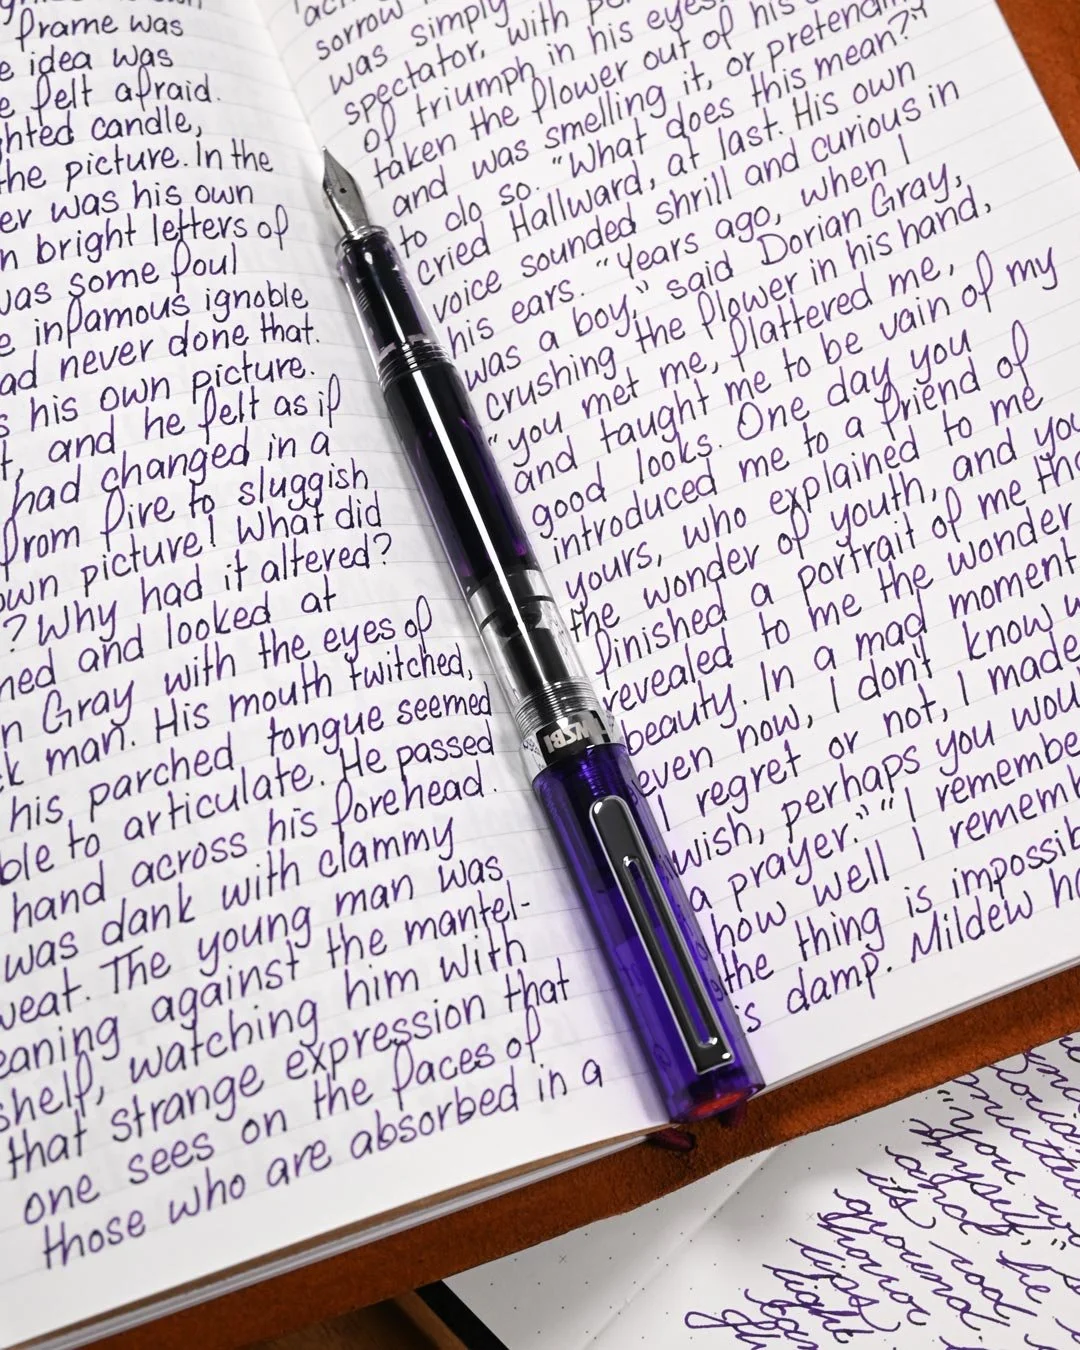 frame was
idea was
felt afraid.
candle,
the picture. In the
was his own
bright letters of
was some foul
infamous ignoble
had never done that.
his own picture.
and he felt as if
had changed in a
from fire to sluggish
own picture! What did
? Why had it altered?
and looked at
Gray with the eyes of
man. His mouth twitched,
his parched tongue seemed
to articulate. He passed
hand across his forehead.
was dank with clammy
The young man was
against the mantel-
shelf, watching him with
that strange expression that
one sees on the faces of
those who are absorbed in a
sorrow
was simply
spectator, with
of triumph in his eyes.
taken the flower out of his
and was smelling it, or pretending
to do so. "What does this mean?"
cried Hallward, at last. His own
voice sounded shrill and curious in
his ears. "Years ago, when I
was a boy," said Dorian Gray,
crushing the flower in his hand,
"you met me, flattered me,
and taught me to be vain of my
good looks. One day you
introduced me to a friend of
yours, who explained to me
the wonder of youth, and you
finished a portrait of me
revealed to me the wonder
beauty. In a mad moment
even now, I don't know
I regret or not, I made
wish, perhaps you
a prayer." "I remember
how well I
the thing is
is damp. Mildew
TWSBI
"You
myself,"
and he
its
ground.
lips
light